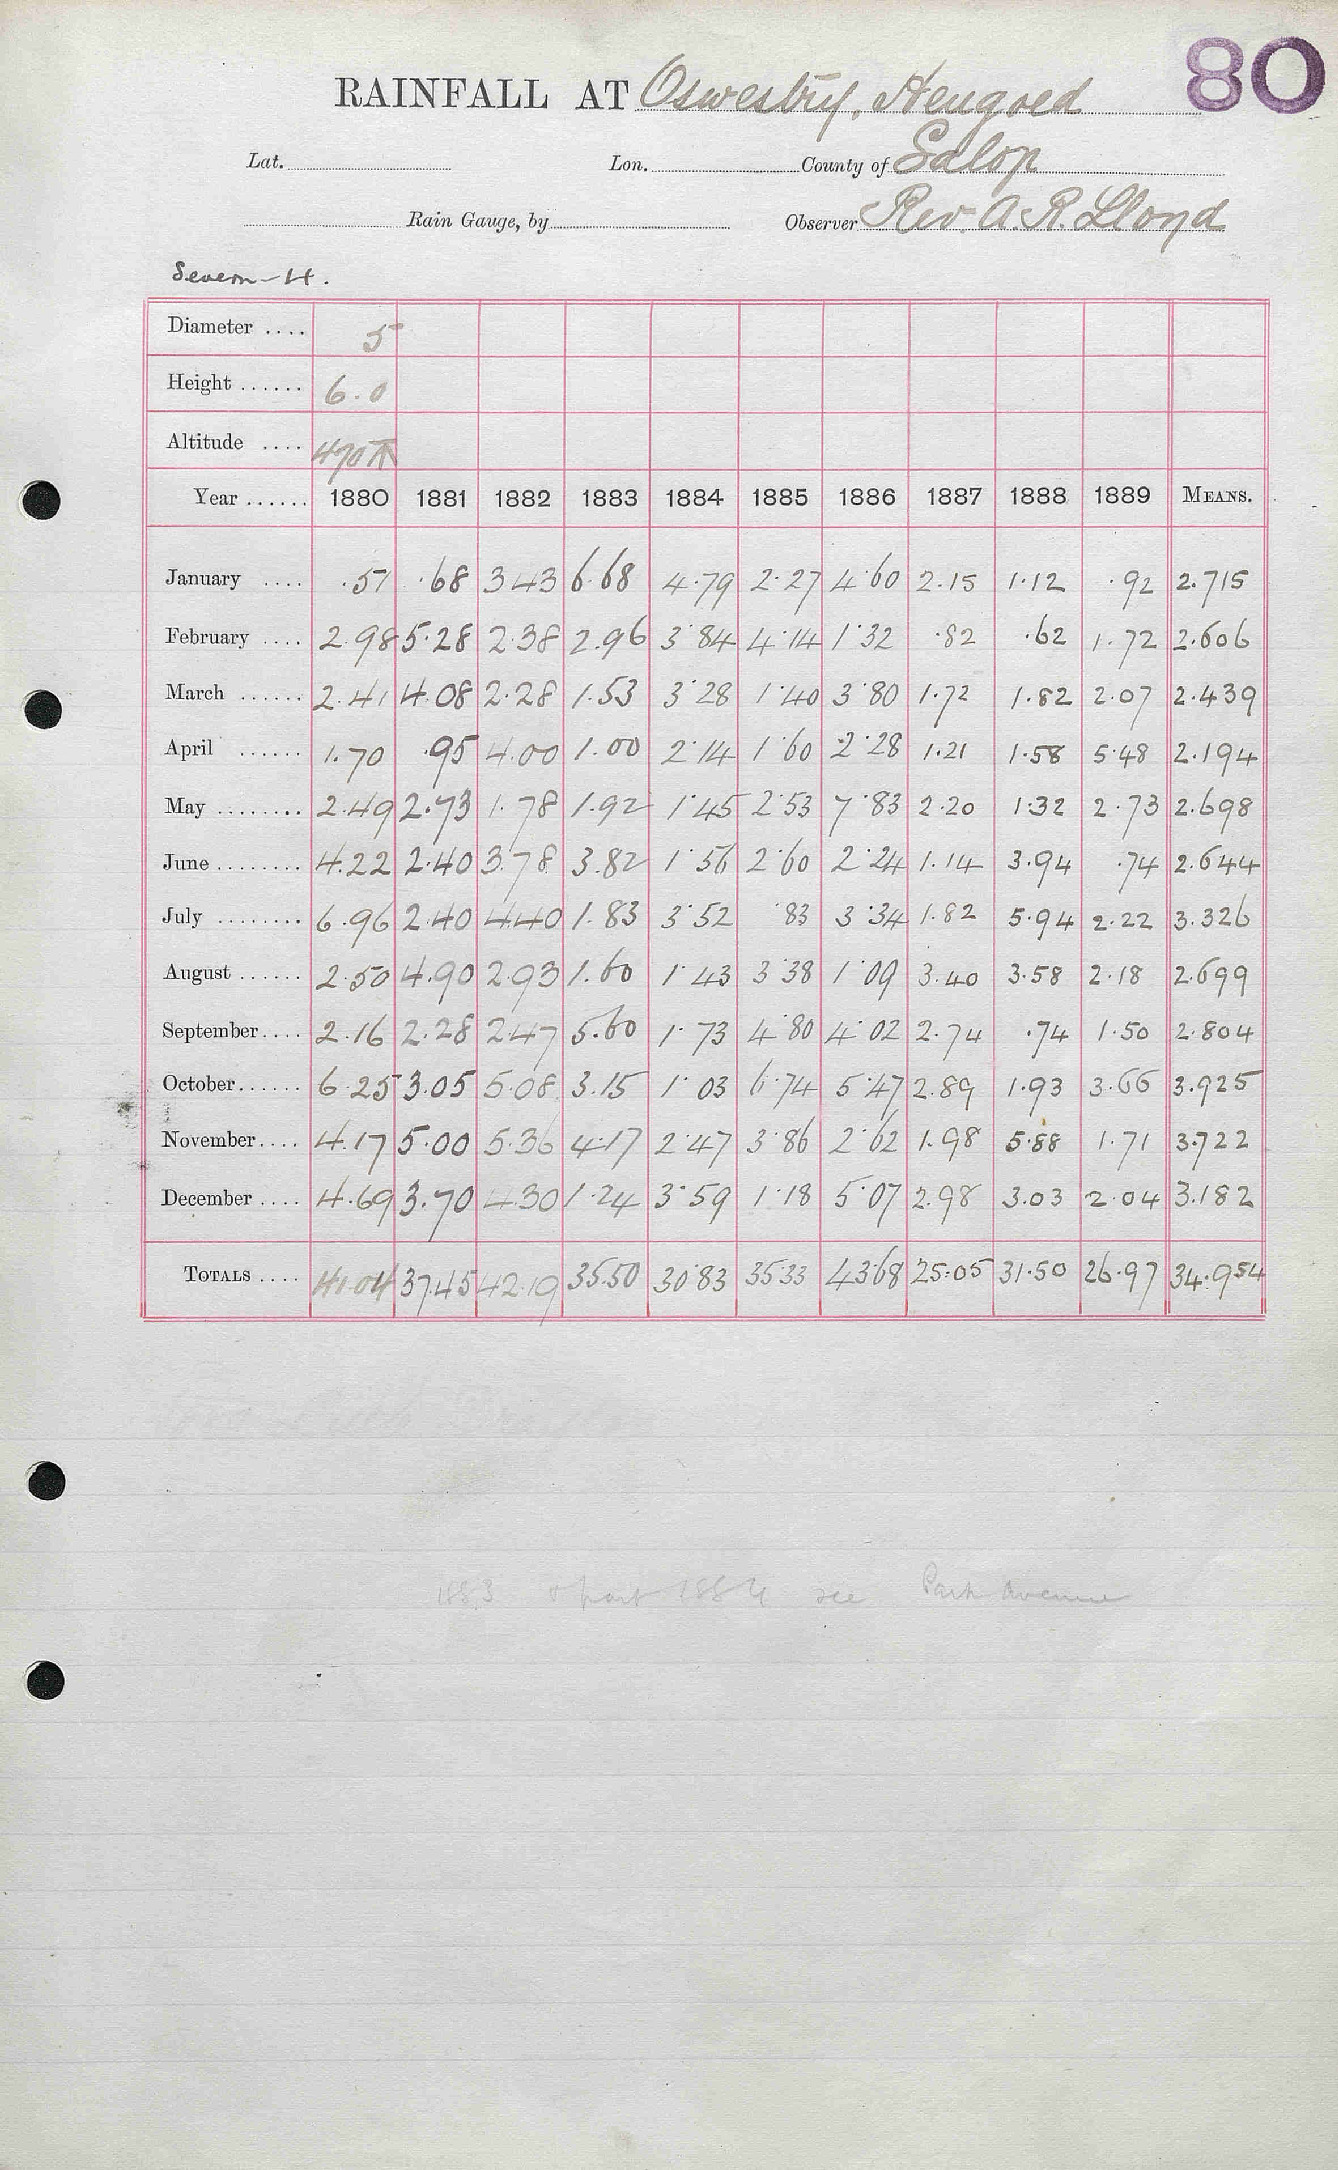 80
RAINFALL AT Oswestry, Hengoed
Lat. Lon. County of Salop
Rain Gauge, by Observer Rev. A. R. Lloyd
Severn - H.
Diameter .... 5
Height ...... 6.0
Altitude .... 470 ft
Year ...... 1880 1881 1882 1883 1884 1885 1886 1887 1888 1889 MEANS.
January .... .57 .68 3.43 6.68 4.79 2.27 4.60 2.15 1.12 .92 2.715
February .... 2.98 5.28 2.38 2.96 3.84 4.14 1.32 .82 .62 1.72 2.606
March ...... 2.41 4.08 2.28 1.53 3.28 1.40 3.80 1.72 1.82 2.07 2.439
April ...... 1.70 .95 4.00 1.00 2.14 1.60 2.28 1.21 1.58 5.48 2.194
May ........ 2.49 2.73 1.78 1.92 1.45 2.53 7.83 2.20 1.32 2.73 2.698
June ........ 4.22 2.40 3.78 3.82 1.56 2.60 2.24 1.14 3.94 .74 2.644
July ........ 6.96 2.40 4.40 1.83 3.52 .83 3.34 1.82 5.94 2.22 3.326
August ...... 2.50 4.90 2.93 1.60 1.43 3.38 1.09 3.40 3.58 2.18 2.699
September .... 2.16 2.28 2.47 5.60 1.73 4.80 4.02 2.74 .74 1.50 2.804
October ...... 6.25 3.05 5.08 3.15 1.03 6.74 5.47 2.89 1.93 3.66 3.925
November .... 4.17 5.00 5.36 4.17 2.47 3.86 2.62 1.98 5.88 1.71 3.722
December .... 4.69 3.70 4.30 1.24 3.59 1.18 5.07 2.98 3.03 2.04 3.182
TOTALS .... 41.04 37.45 42.19 35.50 30.83 35.33 43.68 25.05 31.50 26.97 34.954
1883 & part 1884 see Park Avenue